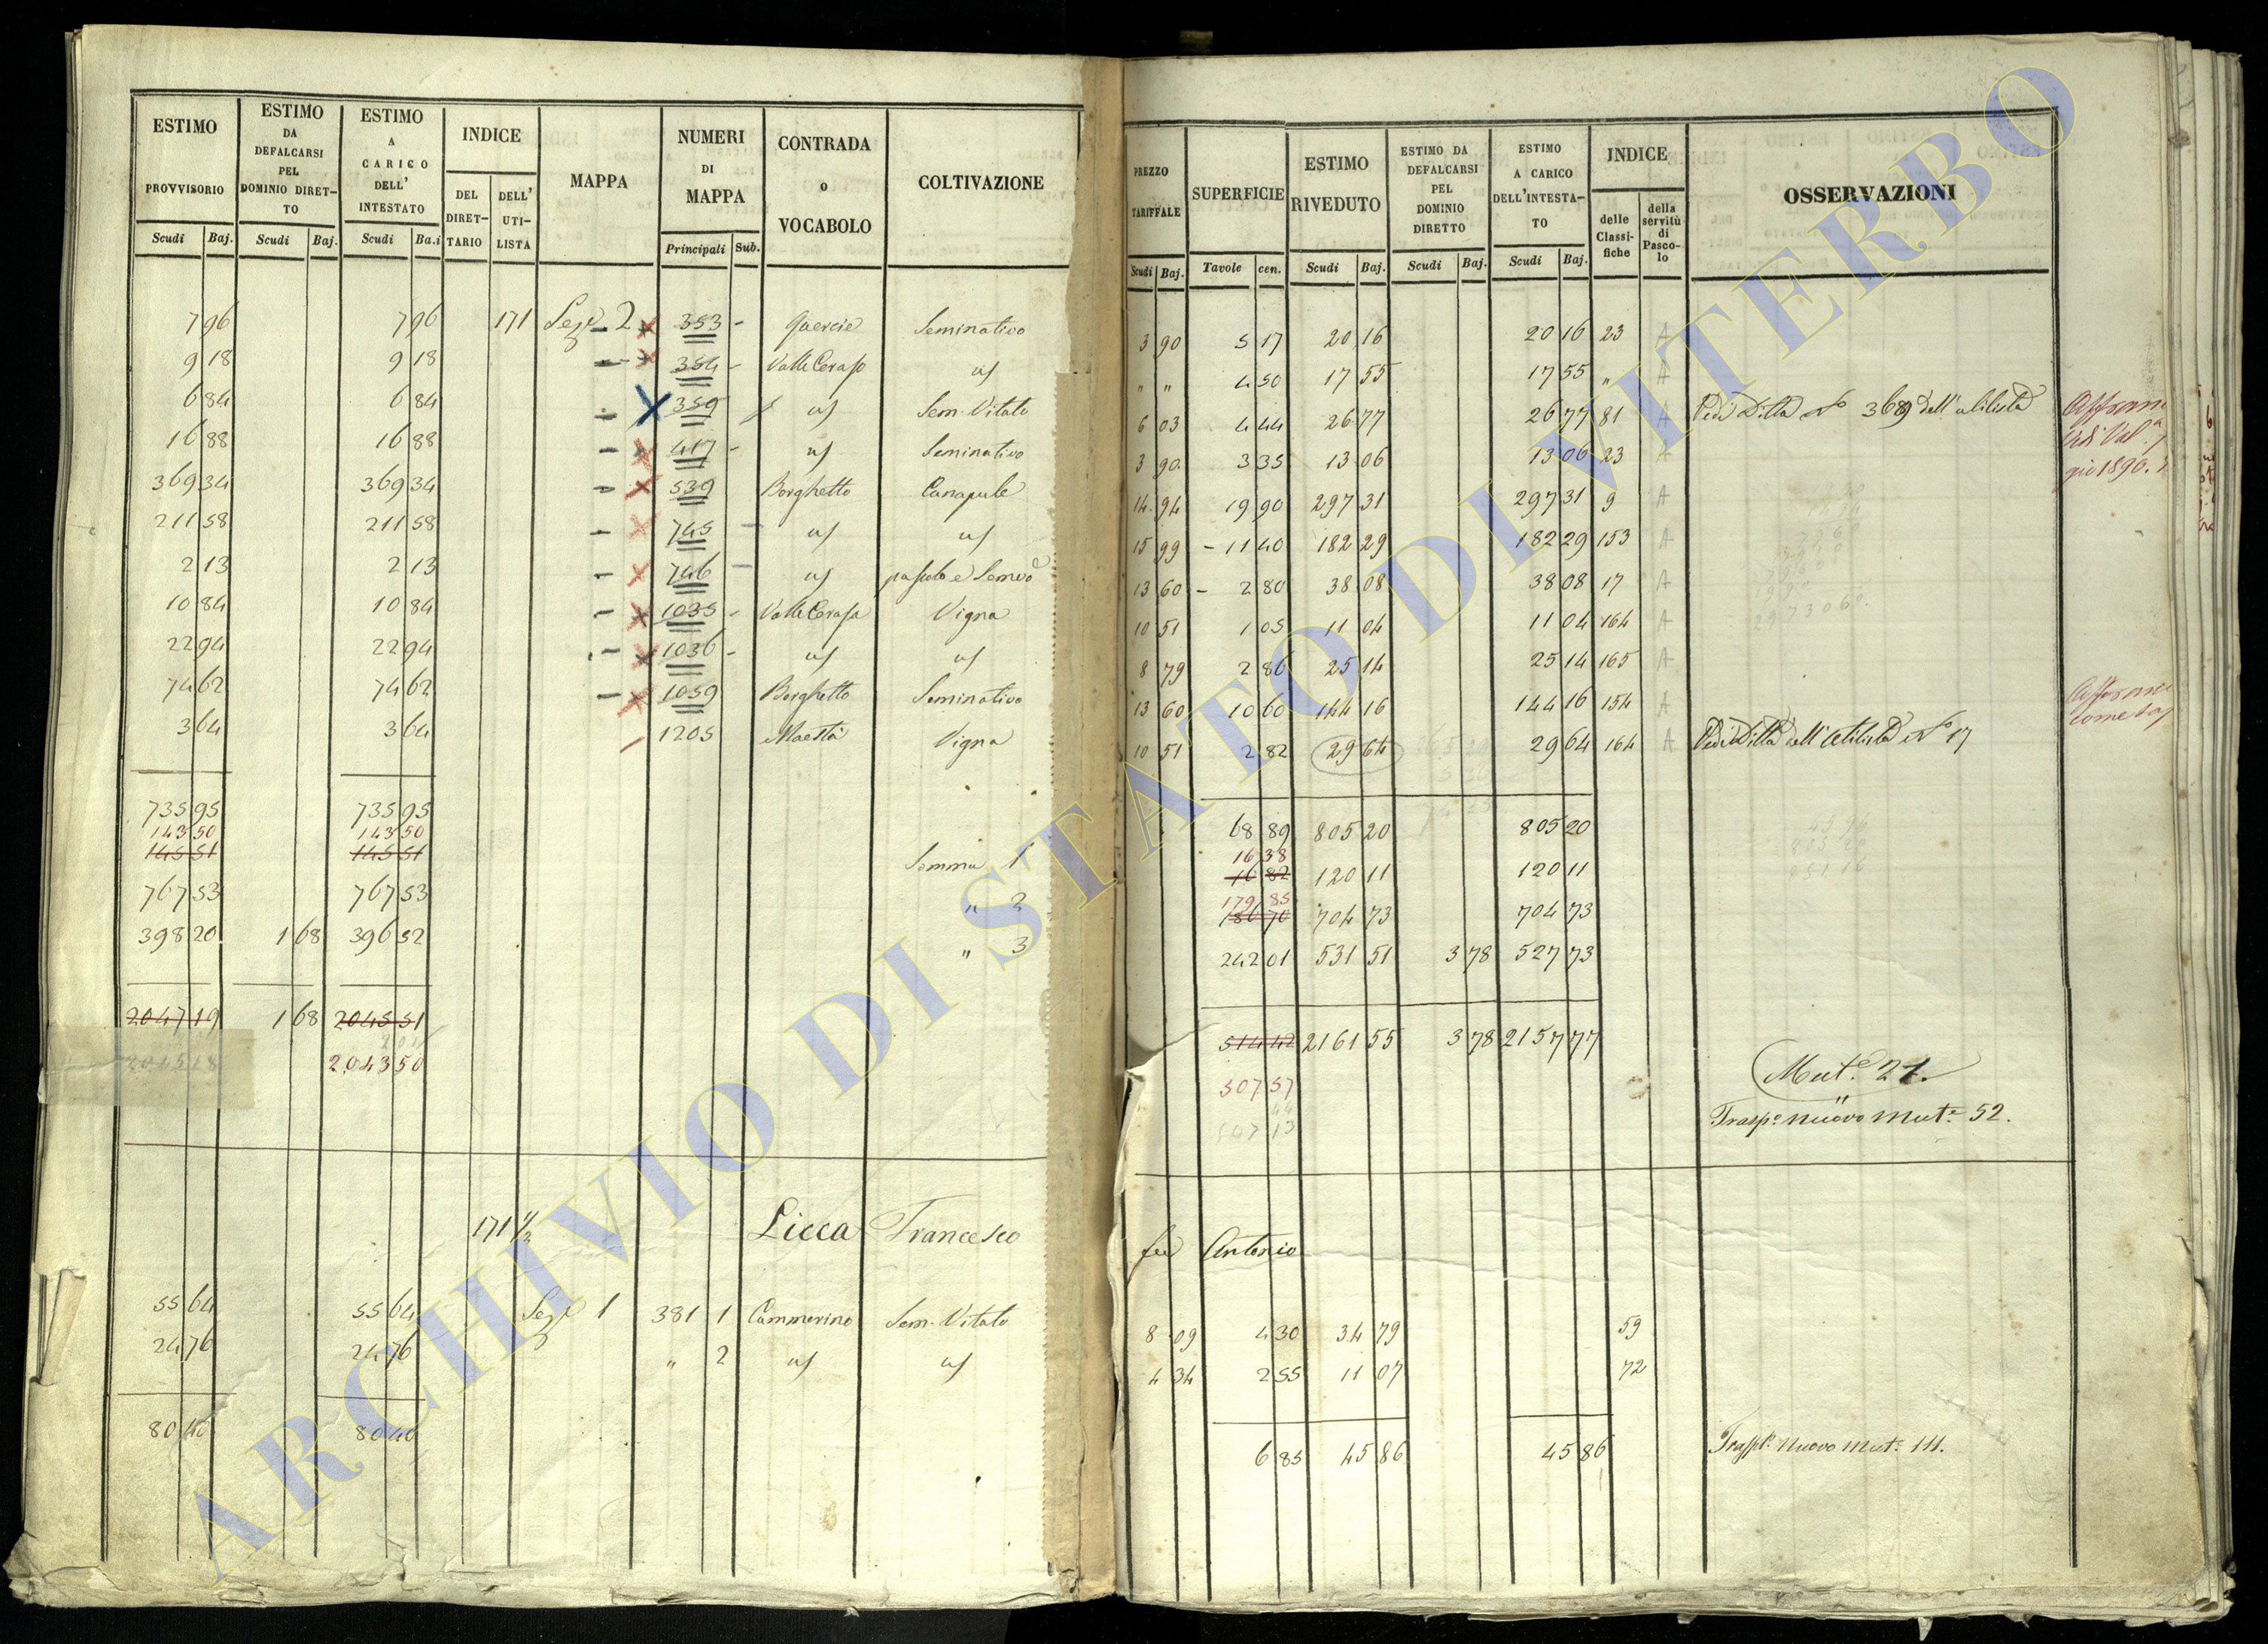 ESTIMO PROVVISORIO Scudi Baj. | ESTIMO DA DEFALCARSI PEL DOMINIO DIRET-TO Scudi Baj. | ESTIMO A CARICO DELL' INTESTATO Scudi Ba.i | INDICE DEL DIRET-TARIO DELL' UTI-LISTA | MAPPA | NUMERI DI MAPPA Principali Sub. | CONTRADA o VOCABOLO | COLTIVAZIONE
PREZZO TARIFFALE Scudi Baj. | SUPERFICIE Tavole cen. | ESTIMO RIVEDUTO Scudi Baj. | ESTIMO DA DEFALCARSI PEL DOMINIO DIRETTO Scudi Baj. | ESTIMO A CARICO DELL'INTESTA-TO Scudi Baj. | INDICE delle Classi-fiche della servitù di Pasco-lo | OSSERVAZIONI
7 96 7 96 171 Sezе 2 353 - Quercie Seminativo 3 90 5 17 20 16 20 16 23 A
9 18 9 18 354 - Valle Cerasa us " " 4 50 17 55 17 55 " A
6 84 6 84 359 us Sem. Vitato 6 03 4 44 26 77 26 77 81 A Vedi Ditta No 369 dell' utilista
16 88 16 88 417 - us Seminativo 3 90 3 35 13 06 13 06 23 A
369 34 369 34 539 Borghetto Canapule 14 94 19 90 297 31 297 31 9 A
211 58 211 58 745 - us us 15 99 - 11 40 182 29 182 29 153 A
2 13 2 13 746 - us pascolo e Semvo 13 60 - 2 80 38 08 38 08 17 A
10 84 10 84 1035 - Valle Cerasa Vigna 10 51 1 05 11 04 11 04 164 A
22 94 22 94 1036 - us us 8 79 2 86 25 14 25 14 165 A
74 62 74 62 1059 Borghetto Seminativo 13 60 10 60 144 16 144 16 154 A
3 64 3 64 1205 Maestà Vigna 10 51 2 82 29 64 29 64 164 A Vedi Ditta dell' Utilista No 17
735 95 735 95 68 89 805 20 805 20
143 50 143 50 16 38
145 51 145 51 Somma 1 16 82 120 11 120 11
179 85
767 53 767 53 " 2 186 70 704 73 704 73
398 20 1 68 396 52 " 3 242 01 531 51 3 78 527 73
2047 19 1 68 2045 51 514 42 2161 55 3 78 2157 77
2045 18 2043 50 507 57
Mute 21.
507 13
Traspo nuovo mute 52.
171 1/2 Licca Francesco fu Antonio
55 64 55 64 Seze 1 381 1 Cammerino Sem. Vitato 8 09 4 30 34 79 59
24 76 24 76 " 2 us us 4 34 2 55 11 07 72
80 40 80 40 6 85 45 86 45 86 Traspto nuovo mute 111.
ARCHIVIO DI STATO DI VITERBO